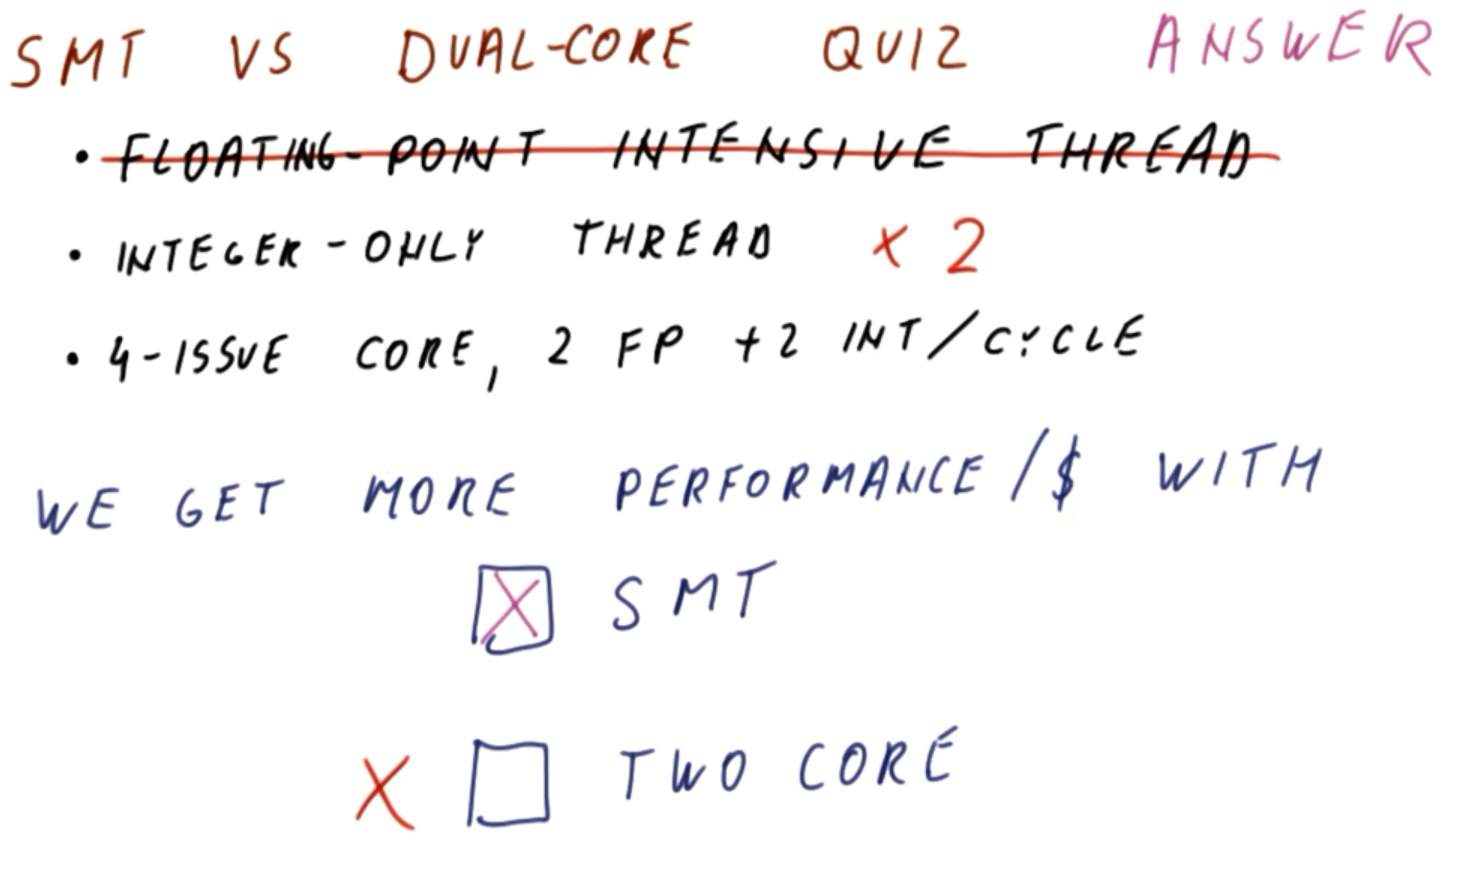 SMT VS DUAL-CORE QUIZ ANSWER
• FLOATING-POINT INTENSIVE THREAD
• INTEGER-ONLY THREAD x 2
• 4-ISSUE CORE, 2 FP +2 INT/CYCLE
WE GET MORE PERFORMANCE/$ WITH
X SMT
X TWO CORE